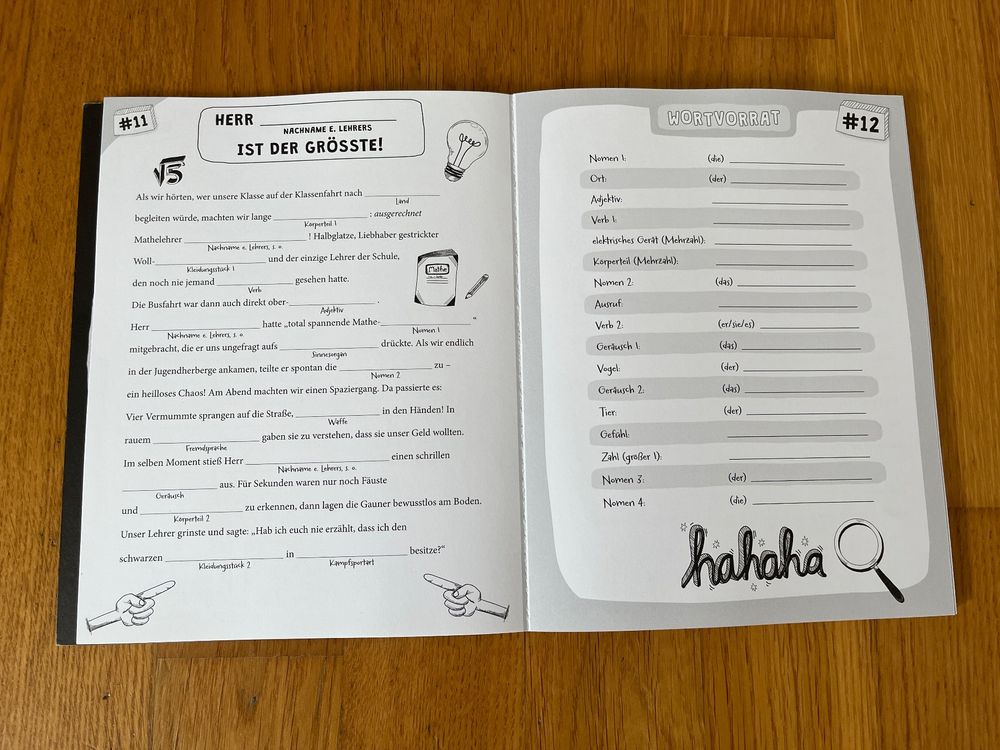 #11
HERR ____________
NACHNAME E. LEHRERS
IST DER GRÖSSTE!
√5
Als wir hörten, wer unsere Klasse auf der Klassenfahrt nach ____________
Land
begleiten würde, machten wir lange ____________ : ausgerechnet
Körperteil 1
Mathelehrer ____________ ! Halbglatze, Liebhaber gestrickter
Nachname e. Lehrers, s. o.
Woll-____________ und der einzige Lehrer der Schule,
Kleidungsstück 1
den noch nie jemand ____________ gesehen hatte.
Verb
Die Busfahrt war dann auch direkt ober-____________ .
Adjektiv
Herr ____________ hatte „total spannende Mathe-____________ “
Nachname e. Lehrers, s. o. Nomen 1
mitgebracht, die er uns ungefragt aufs ____________ drückte. Als wir endlich
Sinnesorgan
in der Jugendherberge ankamen, teilte er spontan die ____________ zu –
Nomen 2
ein heilloses Chaos! Am Abend machten wir einen Spaziergang. Da passierte es:
Vier Vermummte sprangen auf die Straße, ____________ in den Händen! In
Waffe
rauem ____________ gaben sie zu verstehen, dass sie unser Geld wollten.
Fremdsprache
Im selben Moment stieß Herr ____________ einen schrillen
Nachname e. Lehrers, s. o.
____________ aus. Für Sekunden waren nur noch Fäuste
Geräusch
und ____________ zu erkennen, dann lagen die Gauner bewusstlos am Boden.
Körperteil 2
Unser Lehrer grinste und sagte: „Hab ich euch nie erzählt, dass ich den
schwarzen ____________ in ____________ besitze?“
Kleidungsstück 2 Kampfsportart
Mathe
WORTVORRAT
#12
Nomen 1: (die) ____________
Ort: (der) ____________
Adjektiv: ____________
Verb 1: ____________
elektrisches Gerät (Mehrzahl): ____________
Körperteil (Mehrzahl): ____________
Nomen 2: (das) ____________
Ausruf: ____________
Verb 2: (er/sie/es) ____________
Geräusch 1: (das) ____________
Vogel: (der) ____________
Geräusch 2: (das) ____________
Tier: (der) ____________
Gefühl: ____________
Zahl (größer 1): ____________
Nomen 3: (der) ____________
Nomen 4: (die) ____________
hahaha